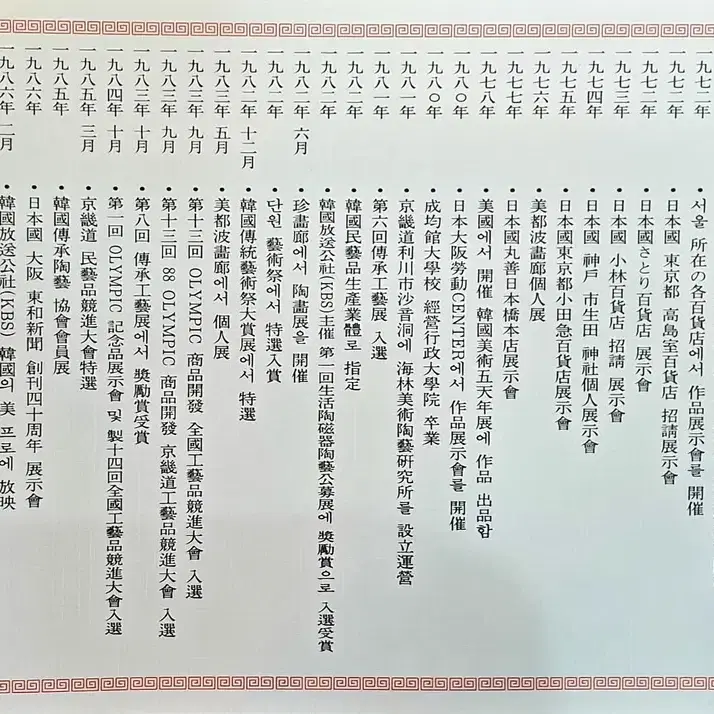 一九七二年 • 서울 所在의 各百貨店에서 作品展示會를 開催
一九七二年 • 日本國 東京都 高島室百貨店 招請展示會
一九七二年 • 日本國さとり百貨店 展示會
一九七三年 • 日本國 小林百貨店 招請 展示會
一九七四年 • 日本國 神戶 市生田 神社個人展示會
一九七五年 • 日本國東京都小田急百貨店展示會
一九七六年 • 美都波畵廊個人展
一九七七年 • 日本國丸善日本橋本店展示會
一九七八年 • 美國에서 開催 韓國美術五天年展에 作品 出品함
一九八〇年 • 日本大阪勞動CENTER에서 作品展示會를 開催
一九八〇年 • 成均館大學校 經營行政大學院 卒業
一九八一年 • 京畿道利川市沙音洞에 海林美術陶藝硏究所를 設立運營
一九八一年 • 第六回傳承工藝展 入選
一九八二年 • 韓國民藝品生産業體로 指定
一九八二年 • 韓國放送公社(KBS)主催 第一回生活陶磁器陶藝公募展에 奬勵賞으로 入選受賞
一九八二年 六月 • 珍畵廊에서 陶畵展을 開催
一九八二年 • 단원 藝術祭에서 特選入賞
一九八二年 十二月 • 韓國傳統藝術祭大賞展에서 特選
一九八三年 五月 • 美都波畵廊에서 個人展
一九八三年 九月 • 第十三回 OLYMPIC 商品開發 全國工藝品競進大會 入選
一九八三年 九月 • 第十三回 88 OLYMPIC 商品開發 京畿道工藝品競進大會 入選
一九八三年 十月 • 第八回 傳承工藝展에서 奬勵賞受賞
一九八四年 十月 • 第一回 OLYMPIC 記念品展示會 및 製十四回全國工藝品競進大會入選
一九八五年 三月 • 京畿道 民藝品競進大會特選
一九八五年 • 韓國傳承陶藝 協會會員展
一九八六年 • 日本國 大阪 東和新聞 創刊四十周年 展示會
一九八六年 二月 • 韓國放送公社(KBS) 韓國의 美 프로에 放映